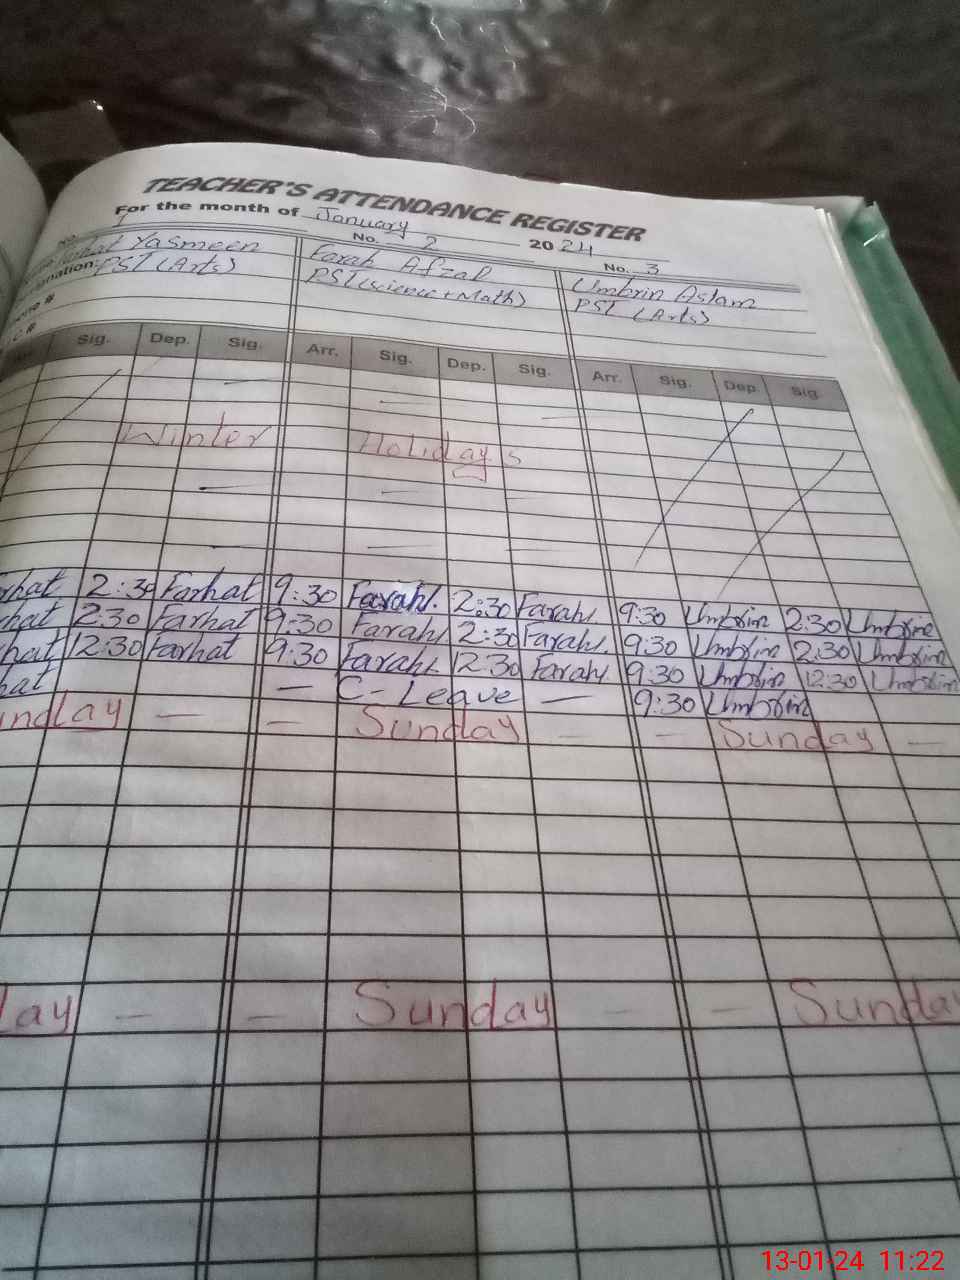 TEACHER'S ATTENDANCE REGISTER
For the month of January 2024
No. 1 No. 2 No. 3
Yasmeen Farah Afzal Umbrin Aslam
PST (Arts) PST (science + Math) PST (Arts)
Sig. Dep. Sig. Arr. Sig. Dep. Sig. Arr. Sig. Dep. Sig.
Winter Holidays
2:30 Farhat 9:30 Farah. 2:30 Farah 9:30 Umbrin 2:30 Umbrin
2:30 Farhat 9:30 Farah 2:30 Farah. 9:30 Umbrin 2:30 Umbrin
12:30 Farhat 9:30 Farah. 12:30 Farah 9:30 Umbrin 12:30 Umbrin
hat — C-Leave — 9:30 Umbrin
unday — — Sunday — — Sunday —
day — — Sunday — — Sunday
13-01-24 11:22